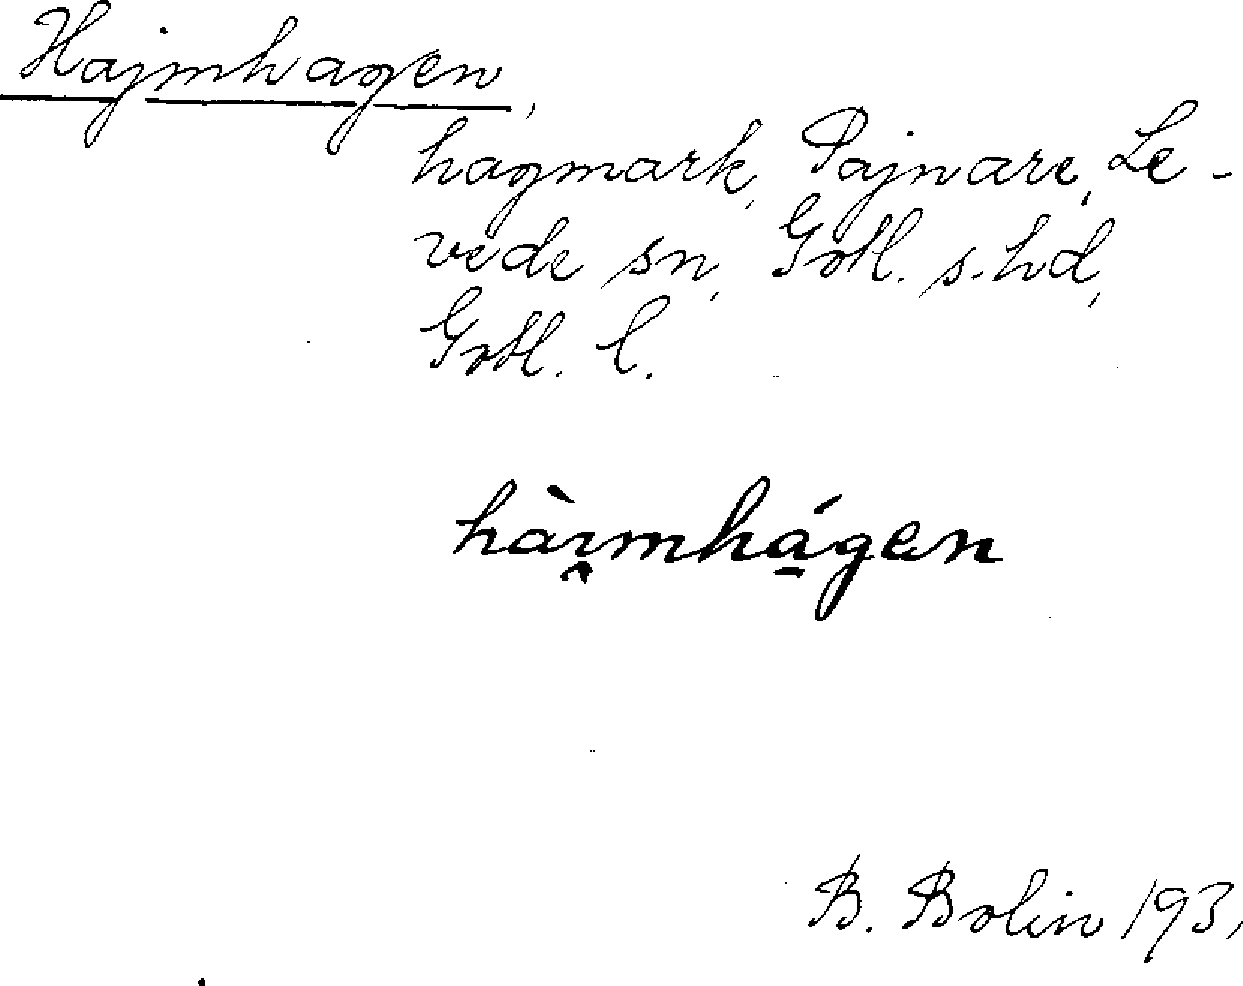 Hajmhagen,
hagmark, Pajnare, Le-
vede sn, Gotl. s. hd,
Gotl. l.
hàı̯mhá̱gen
B. Bolin 193